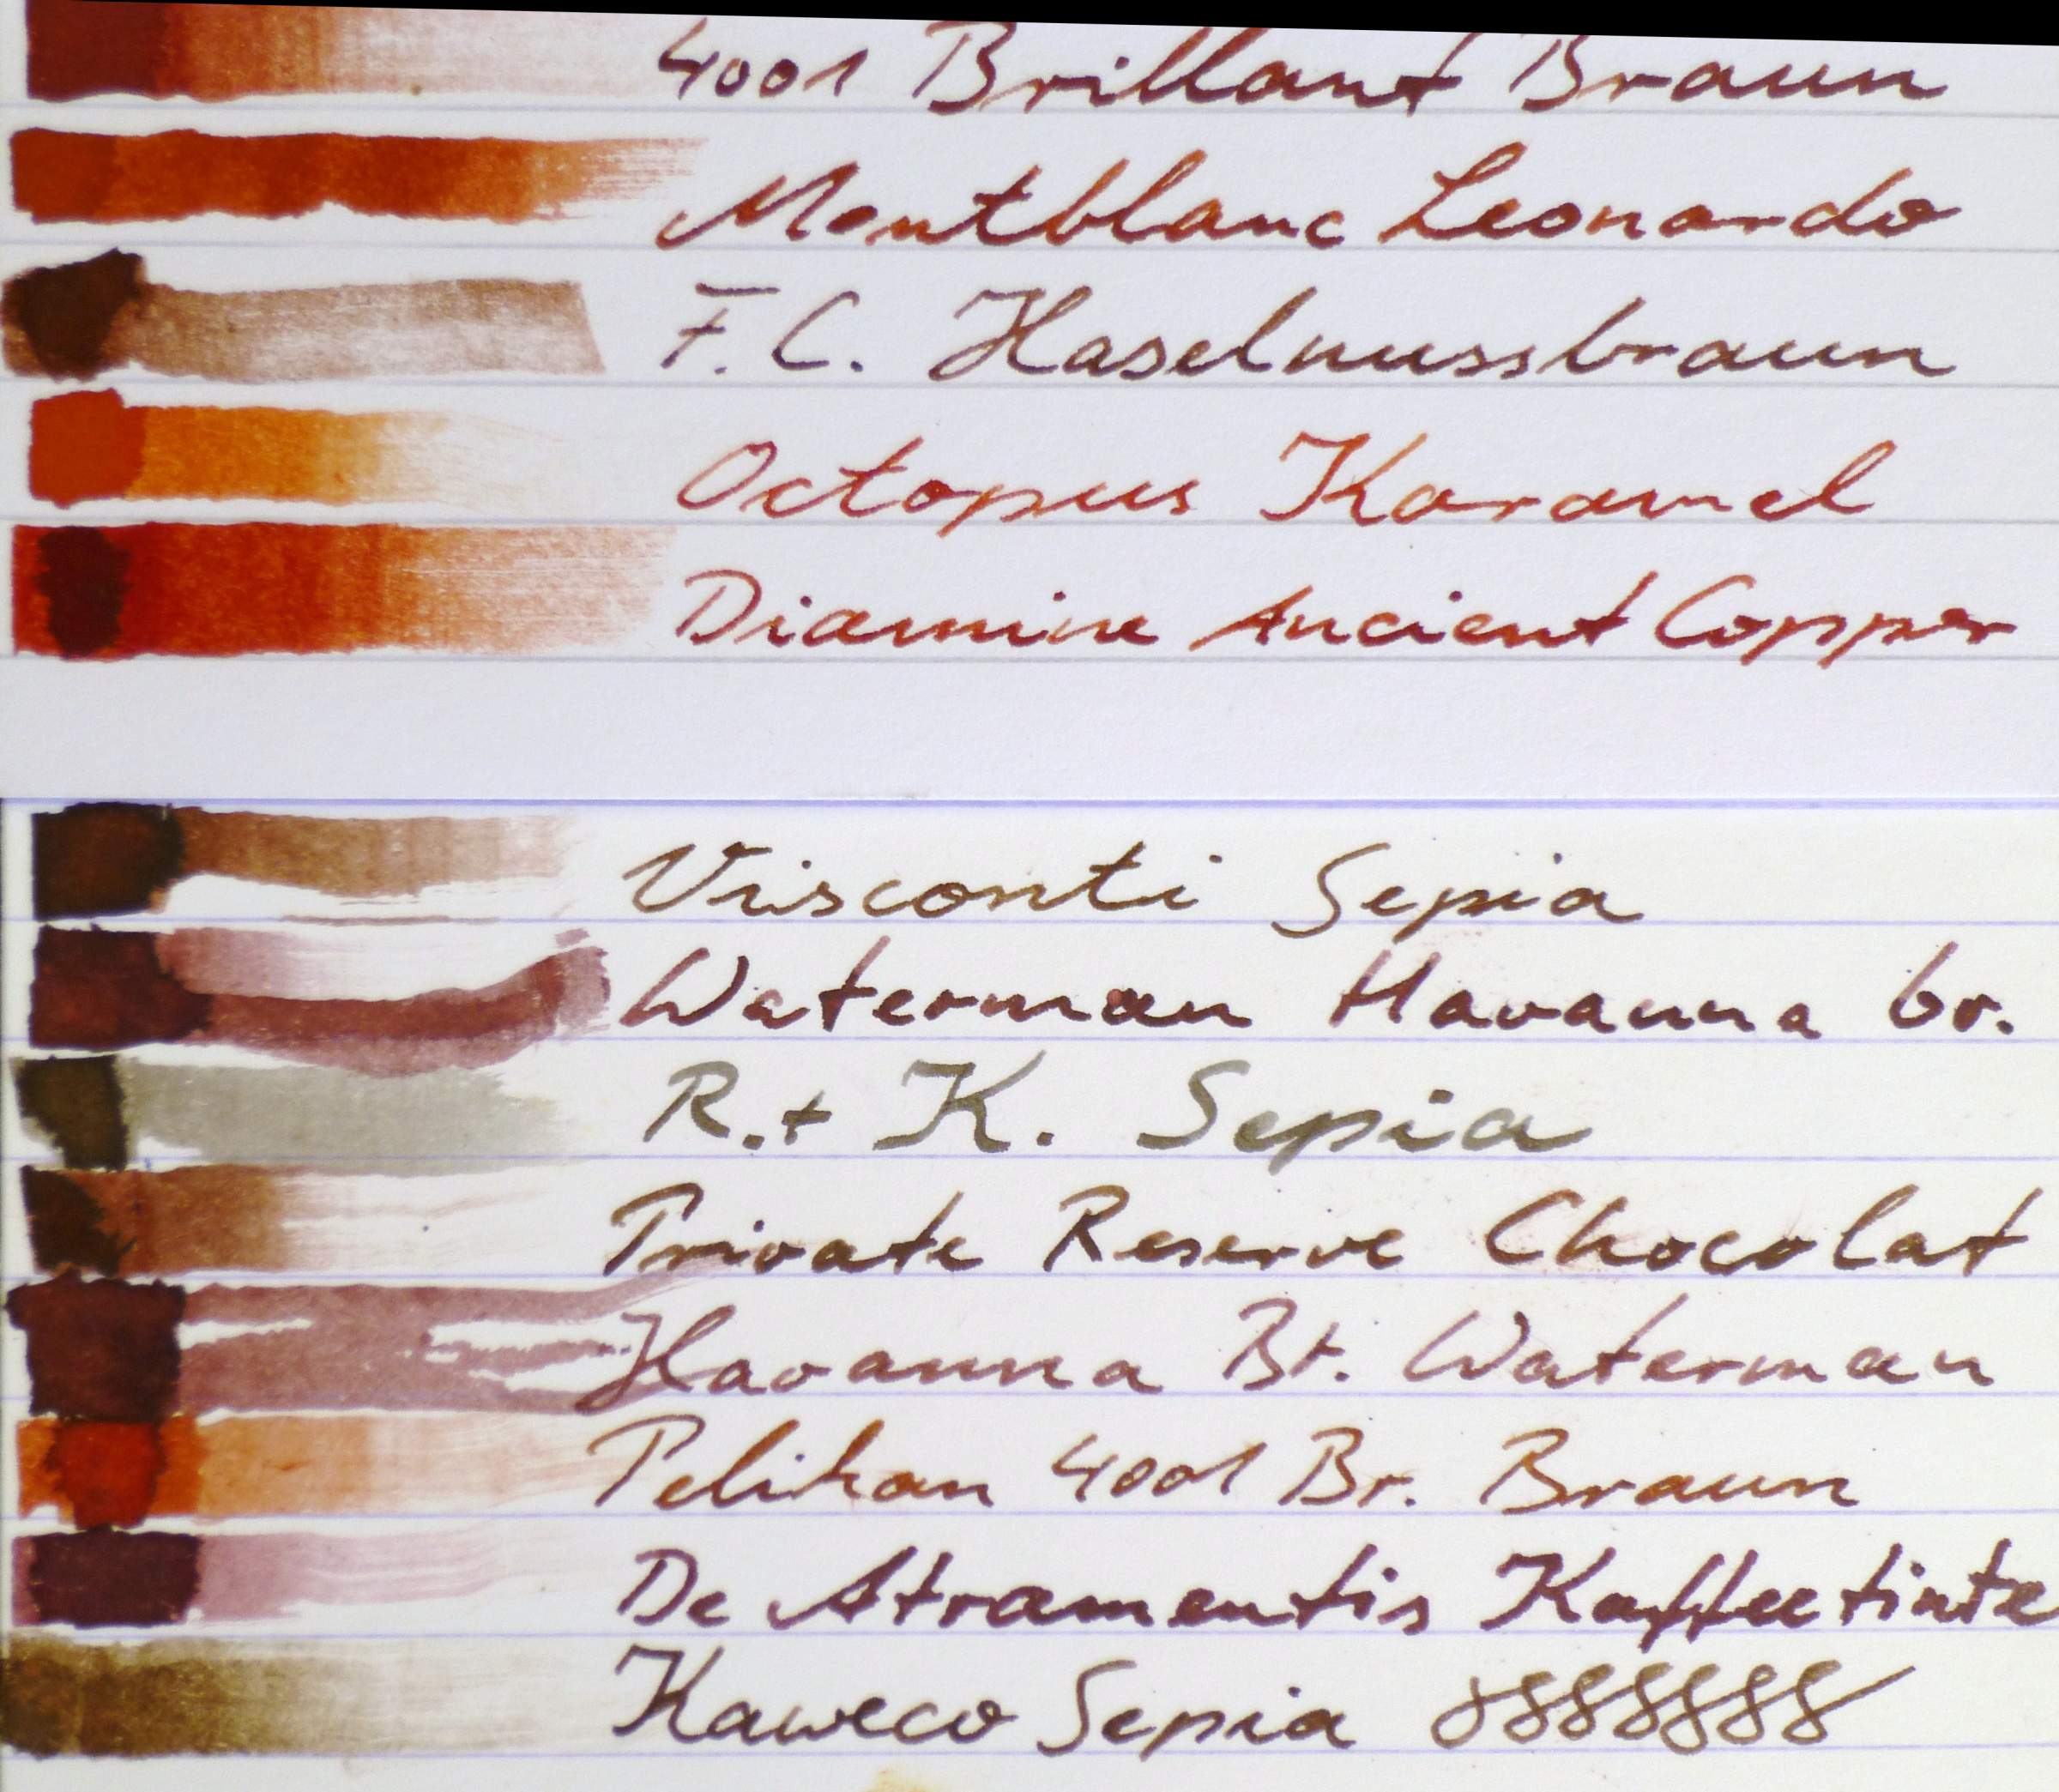 4001 Brillant Braun
Montblanc Leonardo
F. C. Haselnussbraun
Octopus Karamel
Diamine Ancient Copper
Visconti Sepia
Waterman Havanna br.
R. + K. Sepia
Private Reserve Chocolat
Havanna Br. Waterman
Pelikan 4001 Br. Braun
De Atramentis Kaffeetinte
Kaweco Sepia